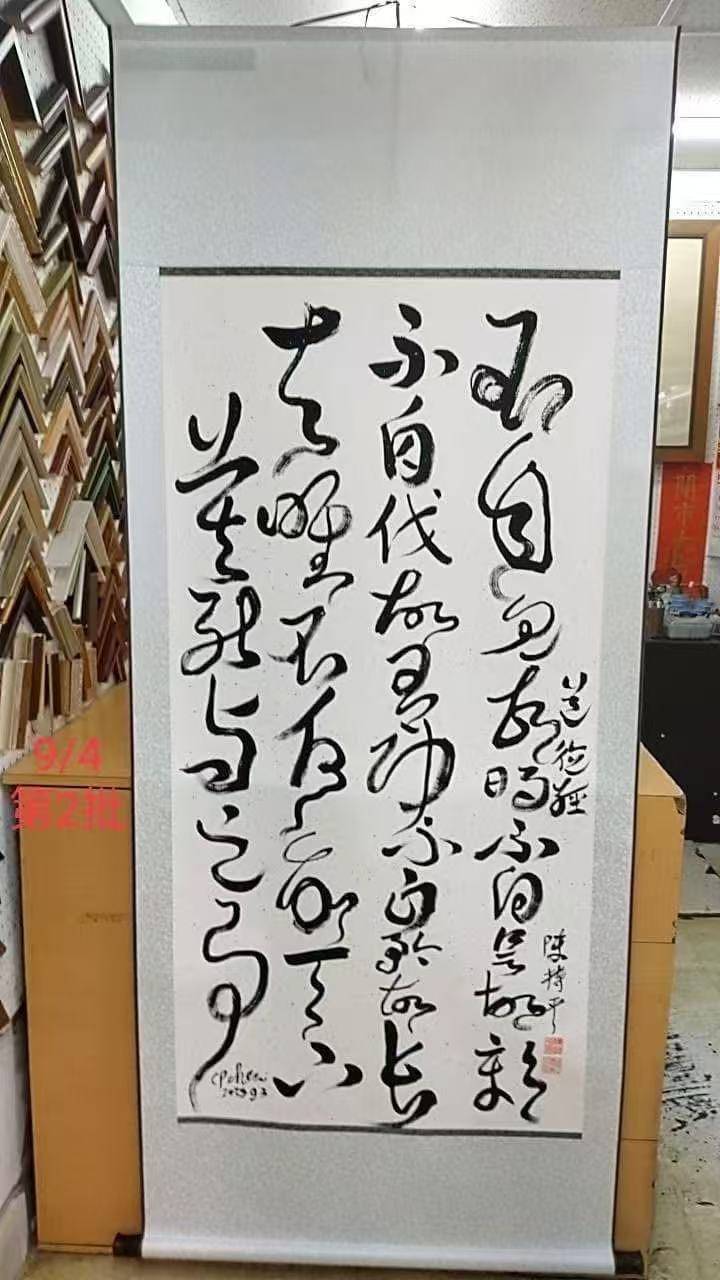 不自見故明不自是故彰
不自伐故有功不自矜故長
夫唯不爭故天下
莫能與之爭
道德經
陳持平
cpchen
9/4
第2批
開市大